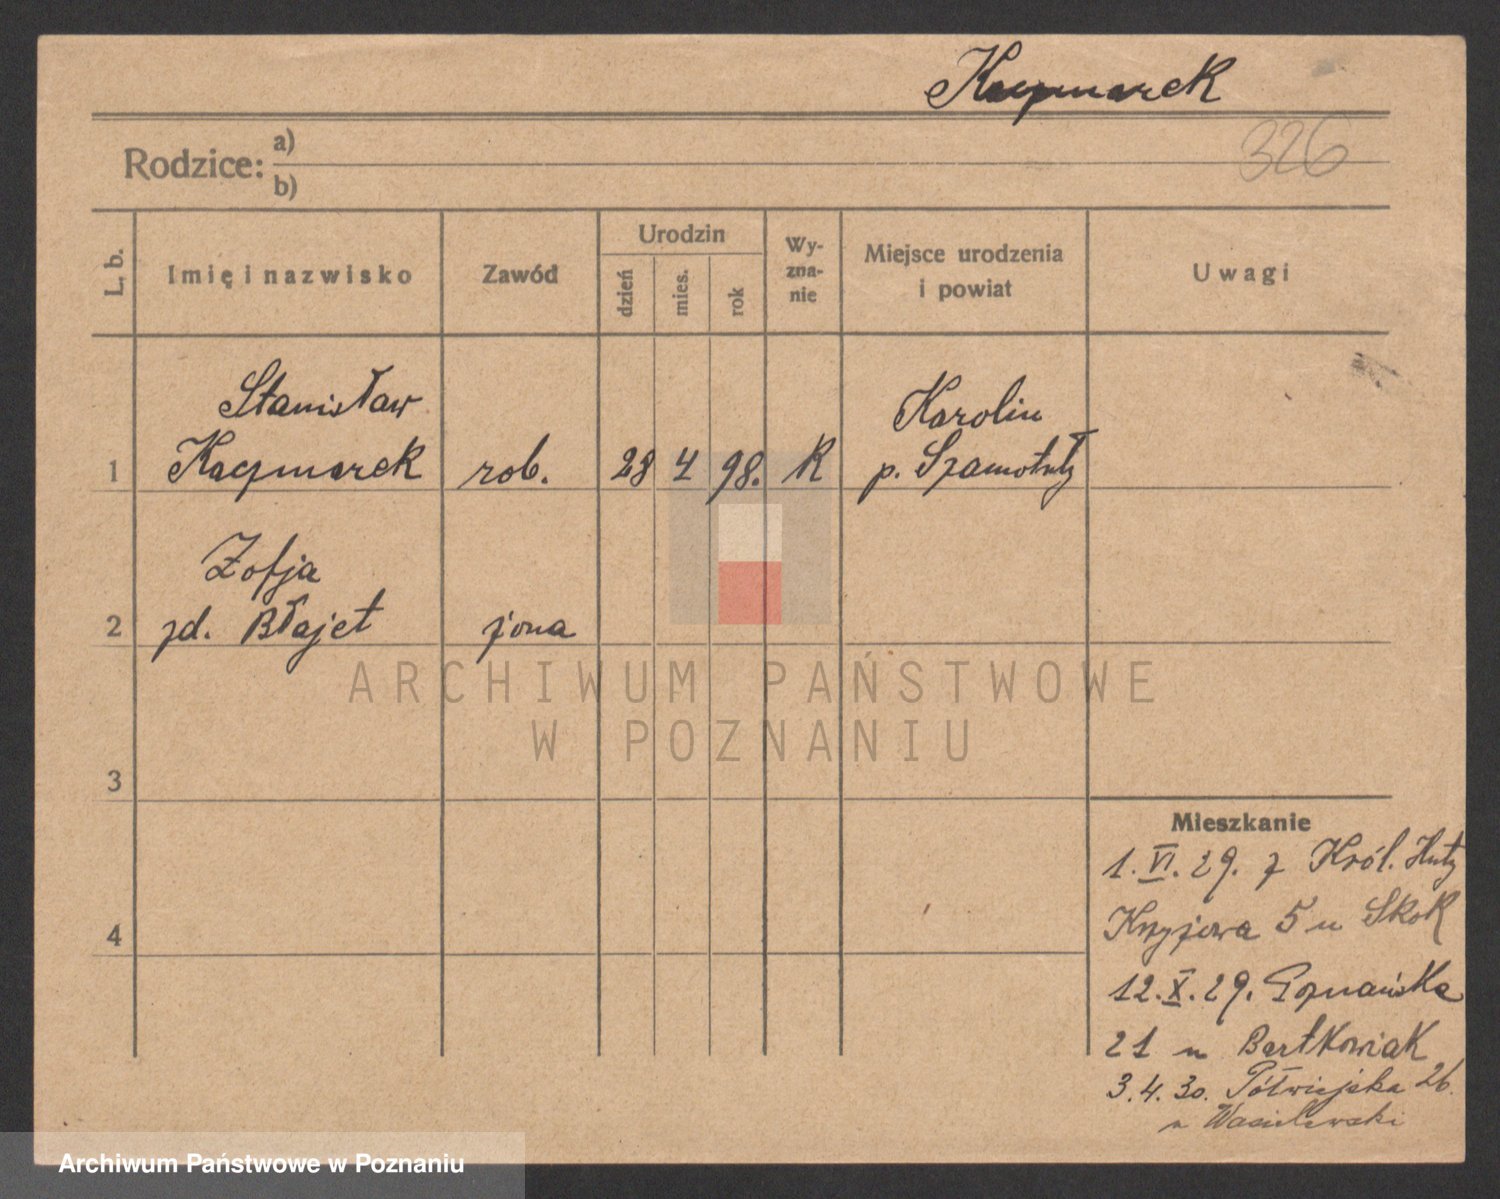 Kaczmarek
326
Rodzice: a)
b)
L. b.
Imię i nazwisko
Zawód
Urodzin
dzień
mies.
rok
Wy-
zna-
nie
Miejsce urodzenia
i powiat
Uwagi
Stanisław
Karolin
1 Kaczmarek rob. 28 4 98. K p. Szamotuły
Zofja
2 zd. Błajet żona
ARCHIWUM PAŃSTWOWE
W POZNANIU
3
4
Mieszkanie
1.VI.29. z Król. Huty
Krzyżowa 5 u Skok
12.X.29. Poznańska
21 u Bartkowiak
3.4.30. Półwiejska 26.
u Wasielewski
Archiwum Państwowe w Poznaniu